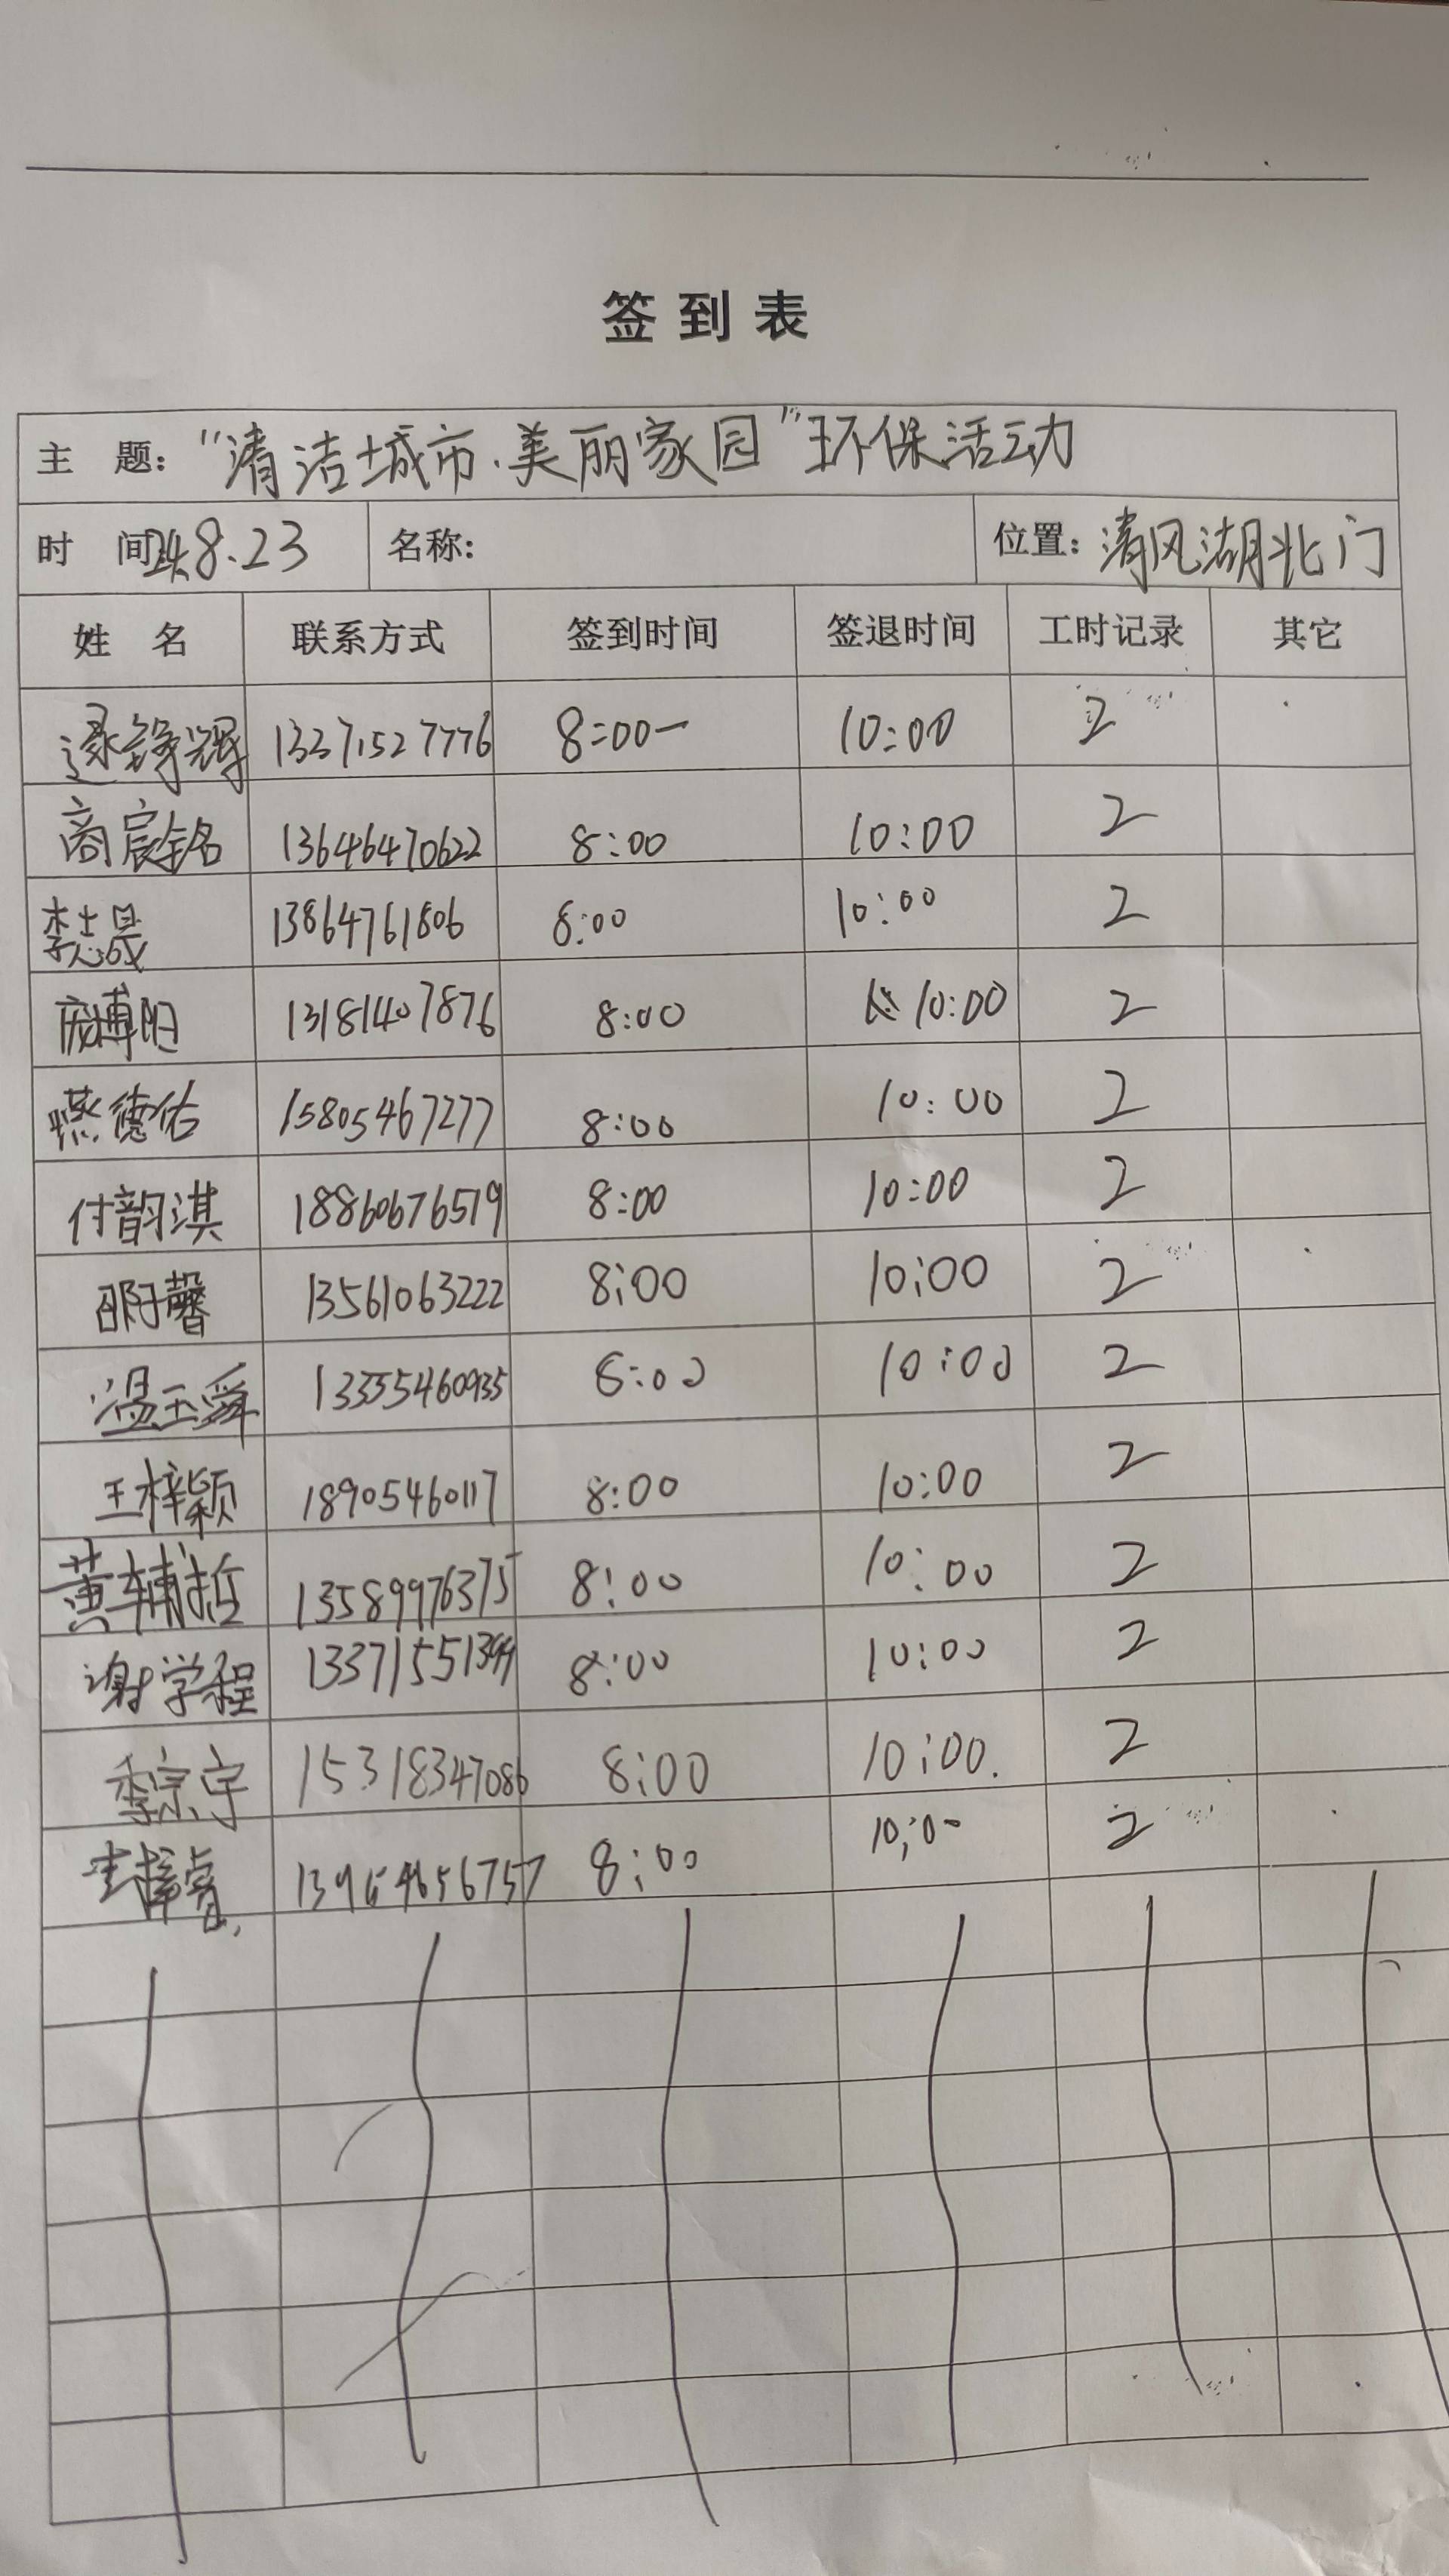 签到表
主 题: "清洁城市.美丽家园"环保活动
时 间 24.8.23 名称: 位置: 清风湖北门
姓 名 联系方式 签到时间 签退时间 工时记录 其它
逯铮辉 13371527776 8:00- 10:00 2
商宸铭 13646470622 8:00 10:00 2
李志晟 13864761806 8:00 10:00 2
庞博阳 13181407876 8:00 10:00 2
燕德佑 15805467277 8:00 10:00 2
付韵淇 18860676519 8:00 10:00 2
13561063222 8:00 10:00 2
温玉舜 13355460935 8:00 10:00 2
王梓颖 18905460117 8:00 10:00 2
黄辅哲 13589976375 8:00 10:00 2
谢学程 8:00 10:00 2
季宗宇 15318347086 8:00 10:00. 2
8:00 10:00 2